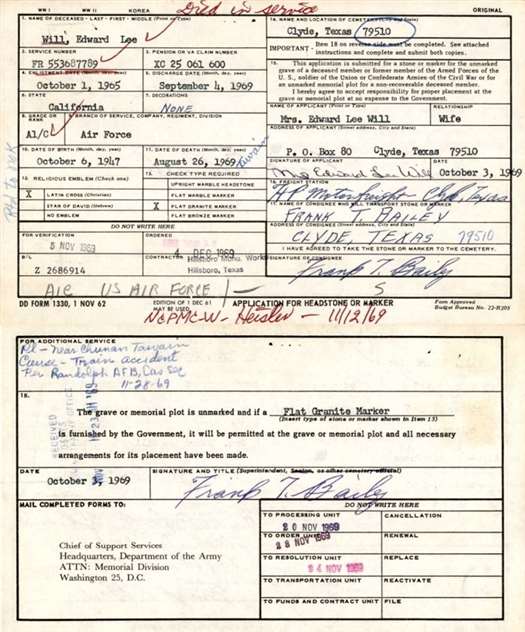 WW I WW II KOREA Died in service ORIGINAL
1. NAME OF DECEASED - LAST - FIRST - MIDDLE (Print or Type)
Will, Edward Lee
14. NAME AND LOCATION OF CEMETERY (City and State)
Clyde, Texas 79510
2. SERVICE NUMBER
FR 553687789
3. PENSION OR VA CLAIM NUMBER
XC 25 061 600
IMPORTANT - Item 18 on reverse side must be completed. See attached instructions and complete and submit both copies.
4. ENLISTMENT DATE (Month, day, year)
October 1, 1965
5. DISCHARGE DATE (Month, day, year)
September 4, 1969
15. This application is submitted for a stone or marker for the unmarked grave of a deceased member or former member of the Armed Forces of the U. S., soldier of the Union or Confederate Armies of the Civil War or for an unmarked memorial plot for a non-recoverable deceased member.
I hereby agree to accept responsibility for proper placement at the grave or memorial plot at no expense to the Government.
6. STATE
California
7. DECORATIONS
NONE
8. GRADE OR RANK
A1/C
9. BRANCH OF SERVICE, COMPANY, REGIMENT, DIVISION
Air Force
NAME OF APPLICANT (Print or Type)
Mrs. Edward Lee Will
RELATIONSHIP
Wife
ADDRESS OF APPLICANT (Street address, City and State)
P. O. Box 80 Clyde, Texas 79510
10. DATE OF BIRTH (Month, day, year)
October 6, 1947
11. DATE OF DEATH (Month, day, year)
August 26, 1969
Taiwan
SIGNATURE OF APPLICANT
Mrs Edward Lee Will
DATE
October 3, 1969
12. RELIGIOUS EMBLEM (Check one)
X LATIN CROSS (Christian)
STAR OF DAVID (Hebrew)
NO EMBLEM
13. CHECK TYPE REQUIRED
UPRIGHT MARBLE HEADSTONE
FLAT MARBLE MARKER
X FLAT GRANITE MARKER
FLAT BRONZE MARKER
16. FREIGHT STATION
Texas
17. NAME OF CONSIGNEE WHO WILL TRANSPORT STONE OR MARKER
FRANK T. BAILEY
ADDRESS OF CONSIGNEE (Street address, City and State)
CLYDE, TEXAS 79510
DO NOT WRITE HERE
FOR VERIFICATION
5 NOV 1969
ORDERED
4 DEC 1969
I HAVE AGREED TO TAKE THE STONE OR MARKER TO THE CEMETERY.
B/L
Z 2686914
CONTRACTOR
Hillsboro Monu. Works
Hillsboro, Texas
Frank T. Baily
AIR US AIR FORCE 1- S
DD FORM 1330, 1 NOV 62
EDITION OF 1 DEC 61 MAY BE USED.
APPLICATION FOR HEADSTONE OR MARKER
Form Approved
Budget Bureau No. 22-R205
NCPMC-W- Heisler - 11/12/69
FOR ADDITIONAL SERVICE
Pl - Near Chunan Taiwan
Cause - Train accident
Per Randolph AFB, Cas Sec
11-28-69
18.
The grave or memorial plot is unmarked and if a Flat Granite Marker
(Insert type of stone or marker shown in Item 13)
is furnished by the Government, it will be permitted at the grave or memorial plot and all necessary
arrangements for its placement have been made.
DATE
October 3, 1969
SIGNATURE AND TITLE (Superintendent, Sexton, or other cemetery official)
Frank T. Baily
MAIL COMPLETED FORMS TO:
Chief of Support Services
Headquarters, Department of the Army
ATTN: Memorial Division
Washington 25, D.C.
DO NOT WRITE HERE
TO PROCESSING UNIT
20 NOV 1969
CANCELLATION
TO ORDER UNIT
28 NOV 1969
RENEWAL
TO RESOLUTION UNIT
24 NOV 1969
REPLACE
TO TRANSPORTATION UNIT
REACTIVATE
TO FUNDS AND CONTRACT UNIT
FILE